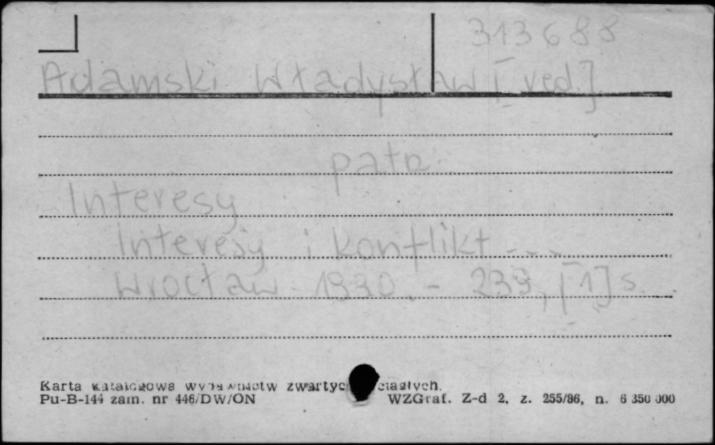 313688
Adamski Władysław [red.]
patrz
Interesy
Interesy i konflikt ---
Wrocław 1990. - 239, [1] s.
Karta katalogowa wydawnictw zwartych ciągłych.
Pu-B-144 zam. nr 446/DW/ON WZGraf. Z-d 2, z. 255/86, n. 6 350 000